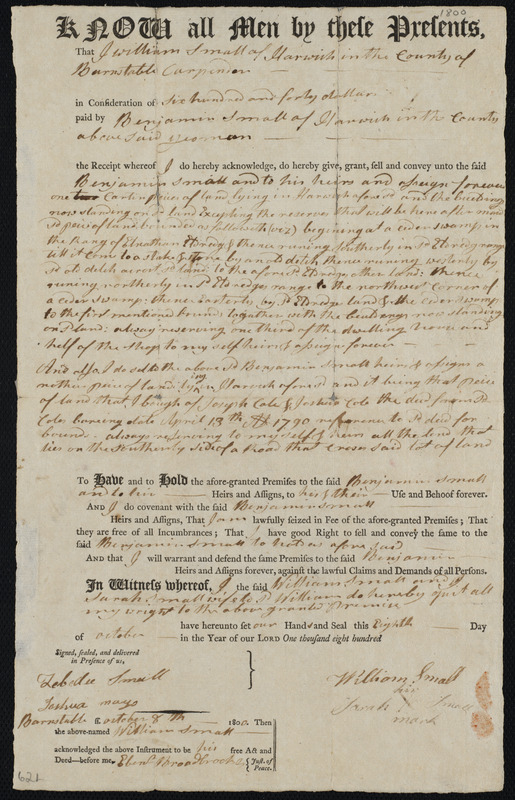 1800
KNOW all Men by these Presents,
That I William Small of Harwich in the County of
Barnstable Carpender
in Consideration of six hundred and forty dollars
paid by Benjamin Small of Harwich in the County
above said yeoman
the Receipt whereof I do hereby acknowledge, do hereby give, grant, sell and convey unto the said
Benjamin Small and to his heirs and assigns forever
one Certin peice of land lying in Harwich afore sd and the buildings
now standing on sd land Excepting the reserve that will be here after mend
sd peice of land bounded as followeth (viz) begining at a cider swamp in
the Rang of Elnathan Eldredg & thence runing Southerly in sd Eldredg range
till it com to a stake & stone by an old ditch thence runing westerly by
sd old ditch acrost sd land to the afore sd Eldredges other land: thence
runing northerly in sd Eldredges range to the northwest corner of
a cider swamp: thence Easterly by sd Eldredge land & the cider swamp
to the first mentioned bound together with the buildings now standing
on sd land: always reserving one third of the dwelling house and
half of the shop to my self heirs & assigns forever
And also I do sell to the above sd Benjamin Small heirs & assigns a
nother peice of land lying in Harwich afore sd and it being that peice
of land that I bough of Joseph Cole & Joshua Cole the deed from sd
Coles bareing date April 13th AD 1790 reference to sd deed for
bounds always reserving to my self & heirs all the land that
lies on the Southerly side of a Road that Croses said lot of land
To Have and to Hold the afore-granted Premises to the said Benjamin Small
and to his Heirs and Assigns, to his & their Use and Behoof forever.
AND I do covenant with the said Benjamin Small
Heirs and Assigns, That I am lawfully seized in Fee of the afore-granted Premises; That
they are free of all Incumbrances; That I have good Right to sell and convey the same to the
said Benjamin Small to hold as afore said
AND that I will warrant and defend the same Premises to the said Benjamin
Heirs and Assigns forever, against the lawful Claims and Demands of all Persons.
In Witness whereof, I the said William Small and I
Sarah Small wife of sd William do hereby quit all
my wright to the above granted Premises
have hereunto set our Hands and Seal this Eighth Day
of october in the Year of our LORD One thousand eight hundred
Signed, sealed, and delivered
in Presence of us,
Zebedee Small
Joshua mayo
William Small
Sarah his Small
mark
Barnstable ss october 8th 1800. Then
the above-named William Small
acknowledged the above Instrument to be his free Act and
Deed—before me, Ebenr Broadbrooks Just. of Peace.
621